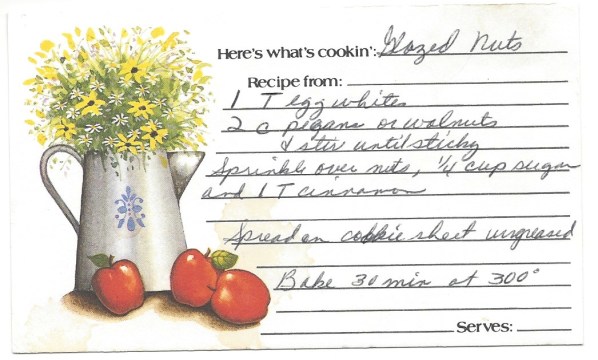 Here's what's cookin': Glazed Nuts
Recipe from:
1 T egg whites
2 c pegans or walnuts
& stir until sticky
Sprinkle over nuts, 1/4 cup sugar
and 1 T cinnamon
Spread on cookie sheet ungreased
Bake 30 min at 300°
Serves: